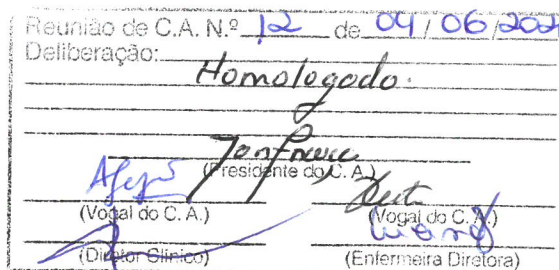 Reunião de C.A. N.º 12 de 04/06/202
Deliberação:
Homologado.
(Presidente do C. A.)
(Vogal do C. A.) (Vogal do C. A.)
(Diretor Clínico) (Enfermeira Diretora)